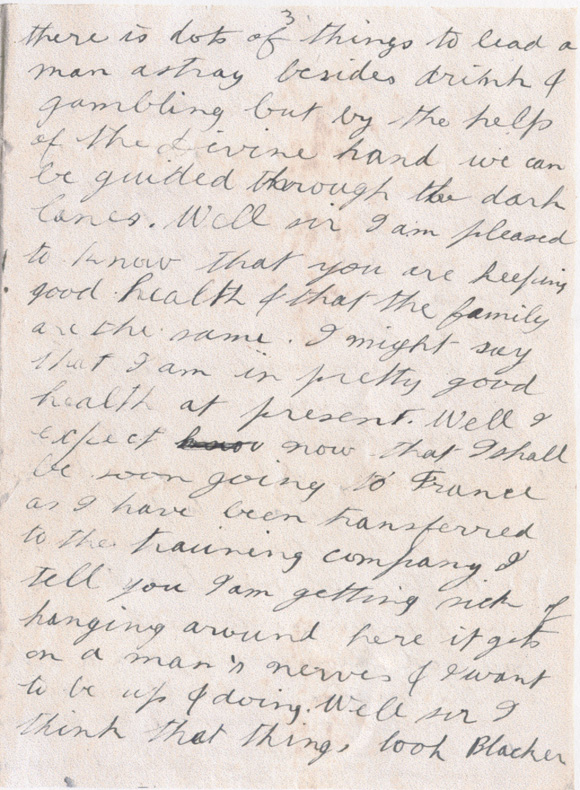 3
there is dots of things to lead a
man astray besides drink &
gambling but by the help
of the divine hand we can
be guided through the dark
lanes. Well sir I am pleased
to know that you are keeping
good health & that the family
are the same. I might say
that I am in pretty good
health at present. Well I
expect know now that I shall
be soon going to France
as I have been transferred
to the training company I
tell you I am getting sick of
hanging around here it gets
on a man's nerves & I want
to be up & doing. Well sir I
think that things look Blacker